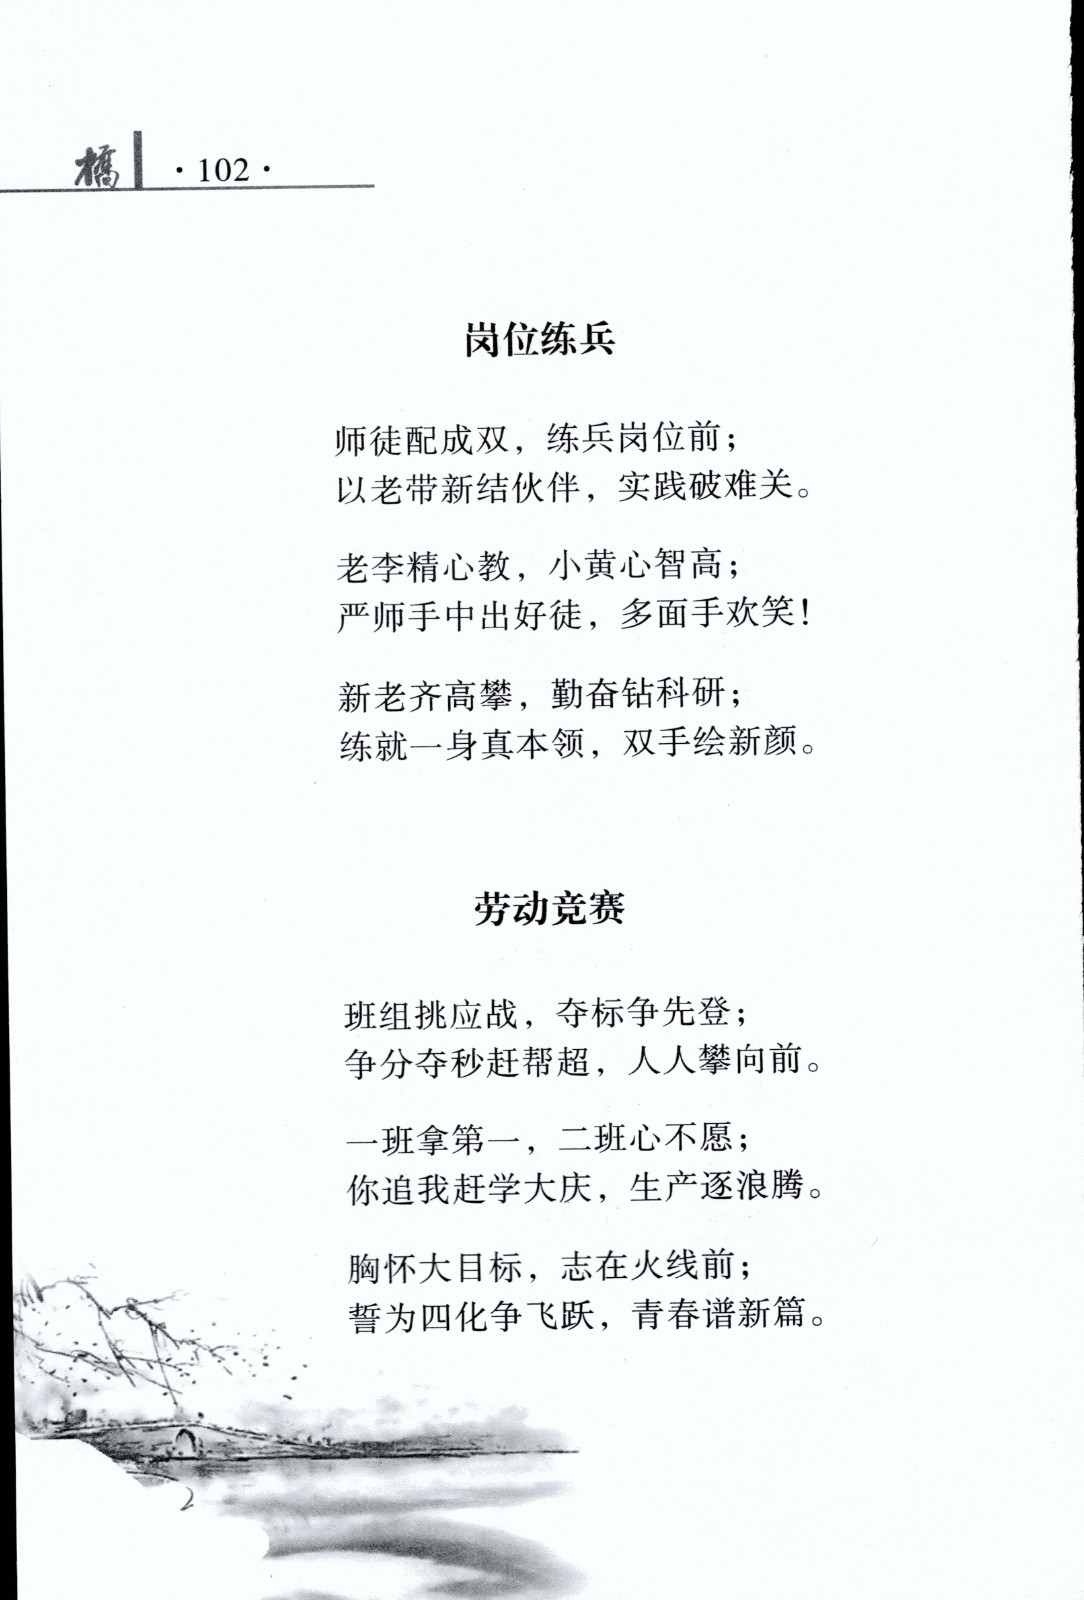 橋 ·102·
岗位练兵
师徒配成双，练兵岗位前；
以老带新结伙伴，实践破难关。
老李精心教，小黄心智高；
严师手中出好徒，多面手欢笑！
新老齐高攀，勤奋钻科研；
练就一身真本领，双手绘新颜。
劳动竞赛
班组挑应战，夺标争先登；
争分夺秒赶帮超，人人攀向前。
一班拿第一，二班心不愿；
你追我赶学大庆，生产逐浪腾。
胸怀大目标，志在火线前；
誓为四化争飞跃，青春谱新篇。
2